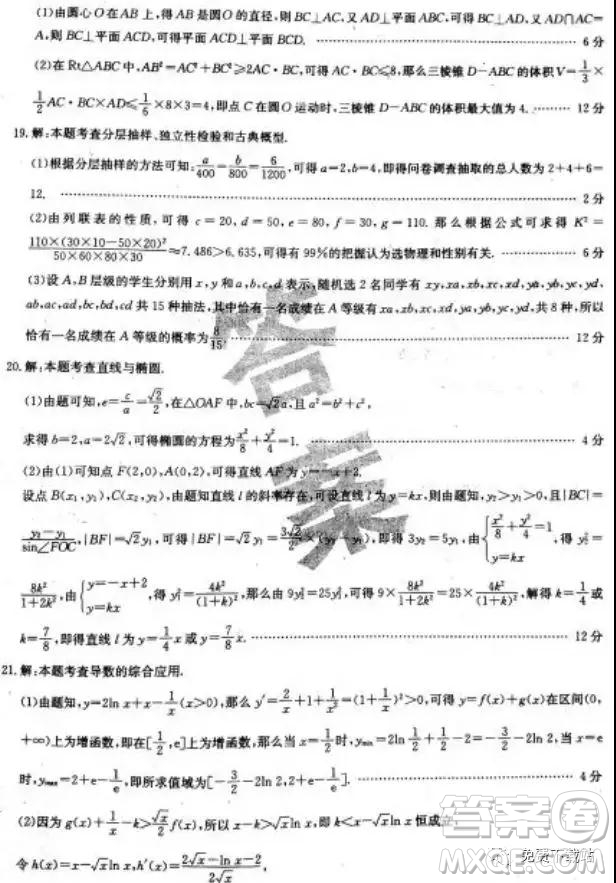 (1)由圆心O在AB上,得AB是圆O的直径,则BC⊥AC,又AD⊥平面ABC,可得BC⊥AD,又AD∩AC=
A,则BC⊥平面ACD,可得平面ACD⊥平面BCD. 6分
(2)在Rt△ABC中,AB²=AC²+BC²≥2AC·BC,可得AC·BC≤8,那么三棱锥D-ABC的体积V=1/3×
1/2AC·BC×AD≤1/6×8×3=4,即点C在圆O运动时,三棱锥D-ABC的体积最大值为4. 12分
19.解:本题考查分层抽样、独立性检验和古典概型.
(1)根据分层抽样的方法可知:a/400=b/800=6/1200,可得a=2,b=4,即得问卷调查抽取的总人数为2+4+6=
12. 2分
(2)由列联表的性质,可得c=20,d=50,e=80,f=30,g=110.那么根据公式可求得K²=
110×(30×10-50×20)²/50×60×80×30≈7.486>6.635,可得有99%的把握认为选物理和性别有关. 6分
(3)设A、B层级的学生分别用x,y和a,b,c,d表示,随机选2名同学有xy,xa,xb,xc,xd,ya,yb,yc,yd,
ab,ac,ad,bc,bd,cd共15种抽法,其中恰有一名成绩在A等级有xa,xb,xc,xd,ya,yb,yc,yd,共8种,所以
恰有一名成绩在A等级的概率为8/15. 12分
20.解:本题考查直线与椭圆.
(1)由题可知,e=c/a=√2/2,在△OAF中,bc=√2a,且a²=b²+c²,
求得b=2,a=2√2,可得椭圆的方程为x²/8+y²/4=1. 4分
(2)由(1)可知点F(2,0),A(0,2),可得直线AF为y=-x+2.
设点B(x₁,y₁),C(x₂,y₂),由题知直线l的斜率存在,可设直线l为y=kx,则由题知,y₂>y₁>0,且|BC|=
y₂-y₁/sin∠FOC,|BF|=√2y₁,可得|BF|=√2y₁=3√2/2×(y₂-y₁),即得3y₂=5y₁,由{x²/8+y²/4=1 y=kx,得y₂²=
8k²/1+2k²,由{y=-x+2 y=kx,得y₁²=4k²/(1+k)²,那么由9y₂²=25y₁²,可得9×8k²/1+2k²=25×4k²/(1+k)²,解得k=1/4或
k=7/8,即得直线l为y=1/4x或y=7/8x. 12分
21.解:本题考查导数的综合应用.
(1)由题知,y=2ln x+x-1/x(x>0),那么y′=2/x+1+1/x²=(1+1/x)²>0,可得y=f(x)+g(x)在区间(0,
+∞)上为增函数,即在[1/2,e]上为增函数,那么当x=1/2时,yₘᵢₙ=2ln1/2+1/2-2=-3/2-2ln2,当x=e
时,yₘₐₓ=2+e-1/e,即所求值域为[-3/2-2ln2,2+e-1/e]. 4分
(2)因为g(x)+1/x-k>√x/2f(x),所以x-k>√xln x,即k<x-√xln x恒成立,
令h(x)=x-√xln x,h′(x)=2√x-ln x-2/2√x,
答案
答案卷
免费下载站
MXQE.COM